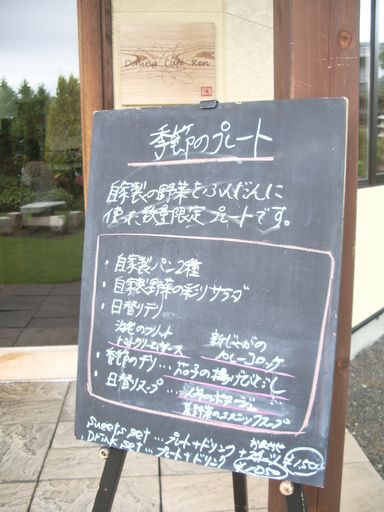 Dining Cafe Ren
季節のプレート
自家製の野菜をふんだんに
使った数量限定プレートです。
・自家製パン2種
・自家製野菜の彩りサラダ
・日替りデリ
海老のフリット 新じゃがの
トマトクリームソース カレーコロッケ
・季節のデリ…茄子の揚げびたし
・日替りスープ…
夏野菜のエスニックスープ
Sweets set … プレート+ドリンク ¥1,500
Drink set … プレート+ドリンク ¥1,050